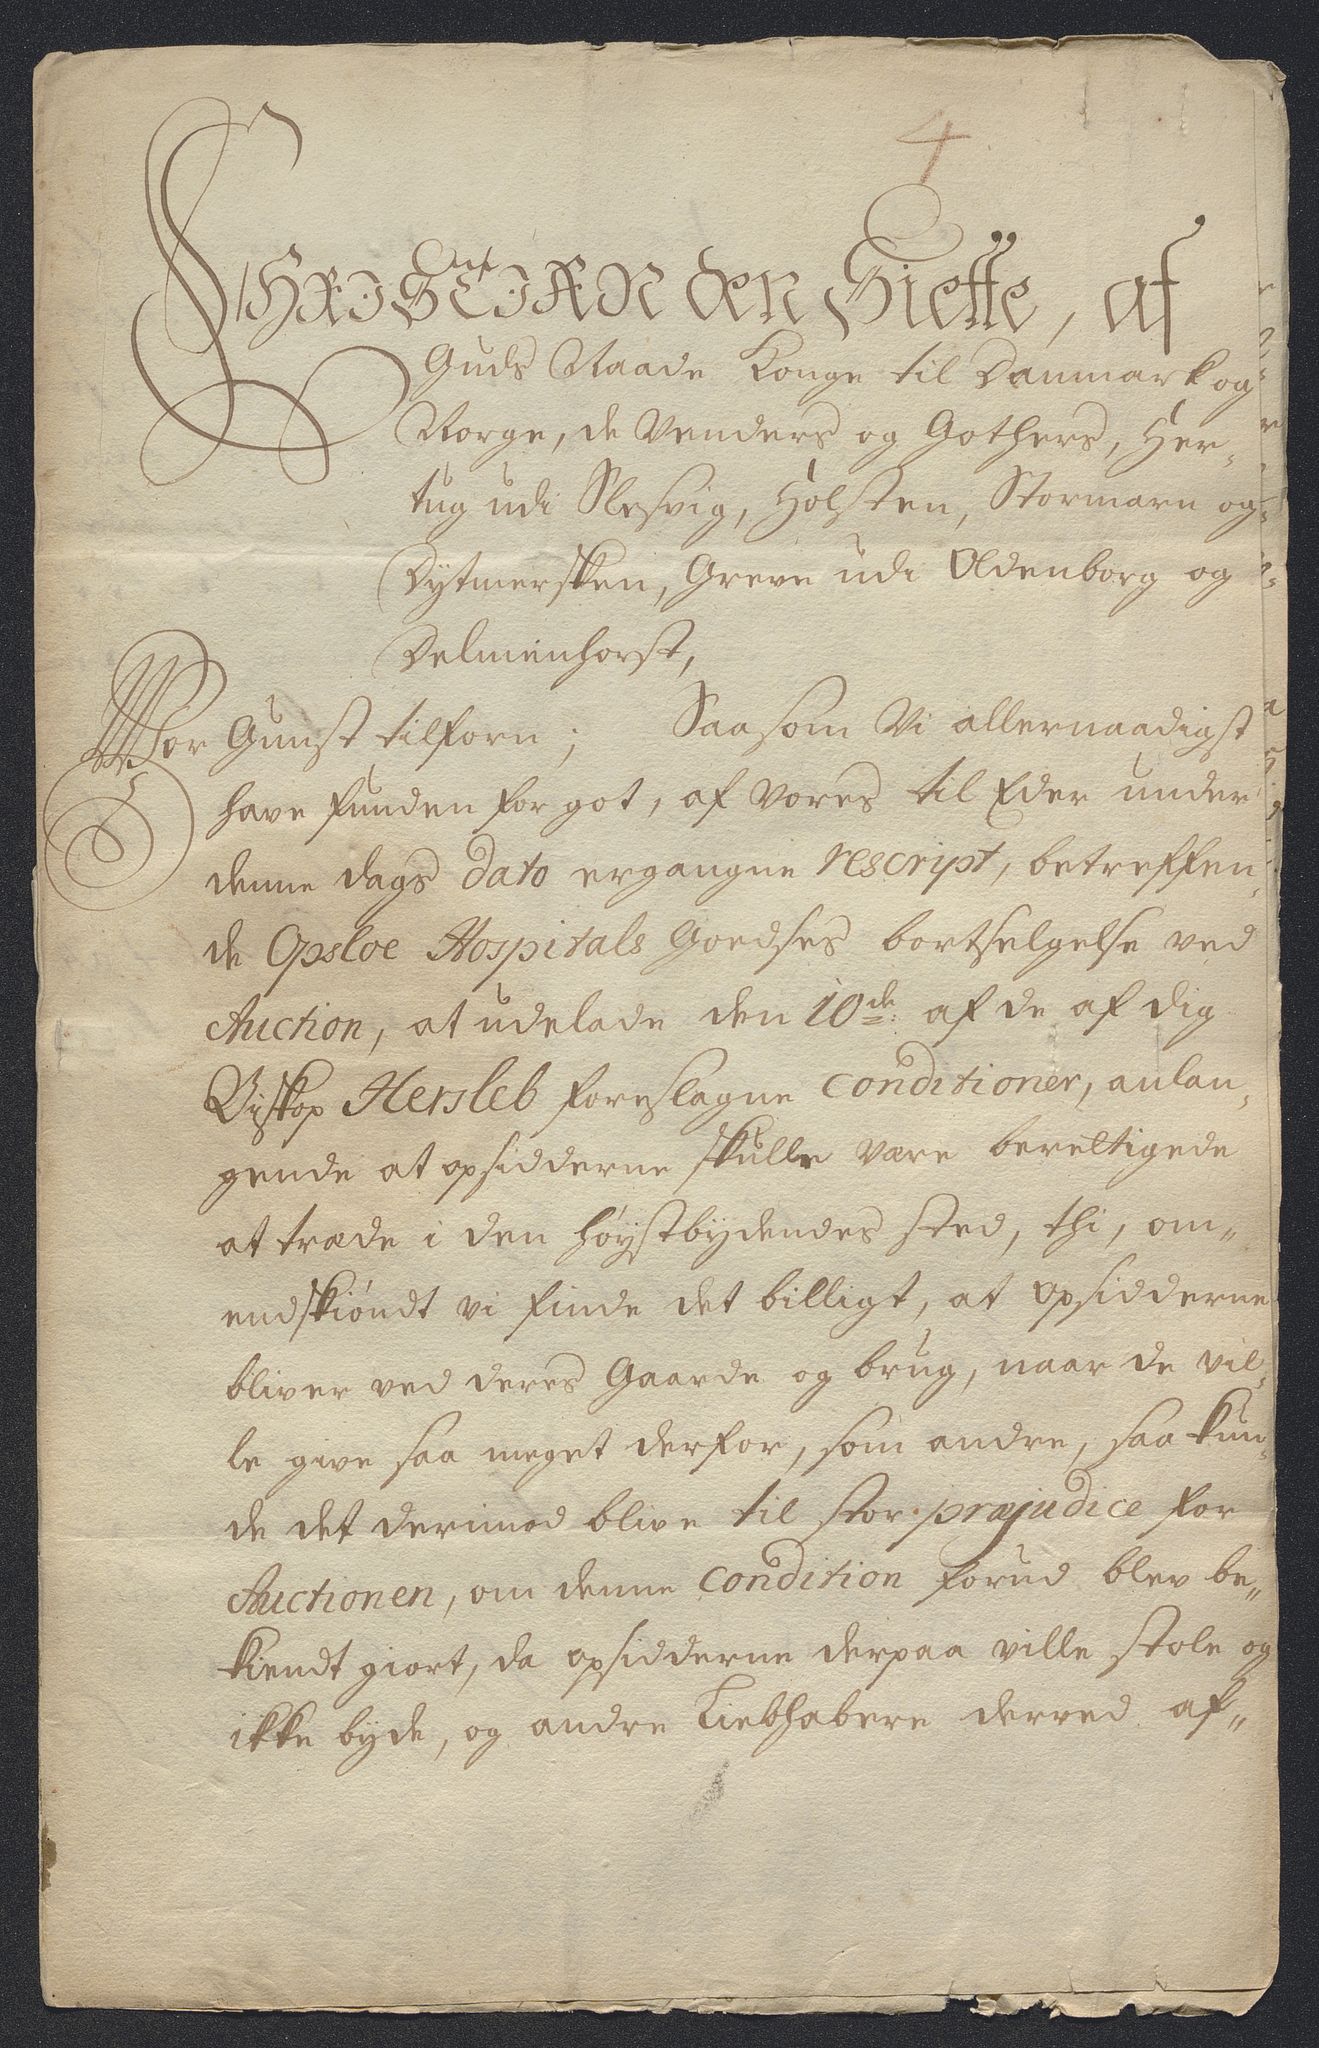 4
CHRISTIAN den Siette, af
Guds Naade Konge til Danmark og
Norge, de Venders og Gothers, Her-
tug udi Slesvig, Holsten, Stormarn og
Dytmersken, Greve udi Oldenborg og
Delmenhorst,
Vor Gunst tilforn; Saasom Vi allernaadigst
have funden for got, af vores til Eder under
denne dags dato ergangne rescript, betreffen-
de Opsloe Hospitals Goedses bortselgelse ved
Auction, at udelade den 10de af de af dig
Biskop Hersleb foreslagne Conditioner, anlan-
gende at opsidderne skulle være berettigede
at træde i den høystbydendes sted, thi, om-
endskiøndt vi finde det billigt, at opsidderne
bliver ved deres Gaarde og brug, naar de vil-
le give saa meget derfor, som andre, saa kun-
de det derimod blive til stor præjudice for
Auctionen, om denne Condition forud blev be-
kiendt giort, da opsidderne derpaa ville stole og
ikke byde, og andre Liebhabere derved af-